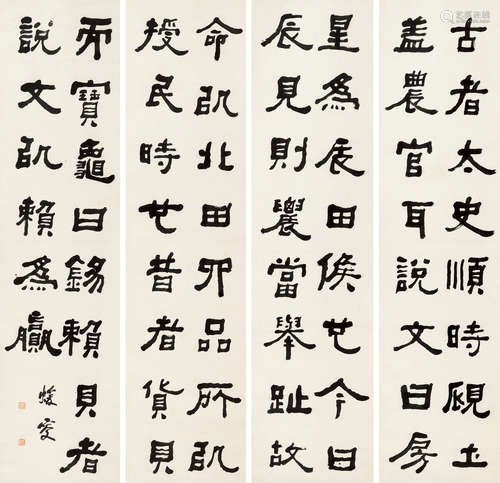 古者太史順時覛土
蓋農官耳說文曰房
星為辰田候也今曰
辰見則農當舉趾故
命以北田卯品所以
授民時也昔者貨貝
而寶龜曰錫賴貝者
說文以賴為贏
蝯叟